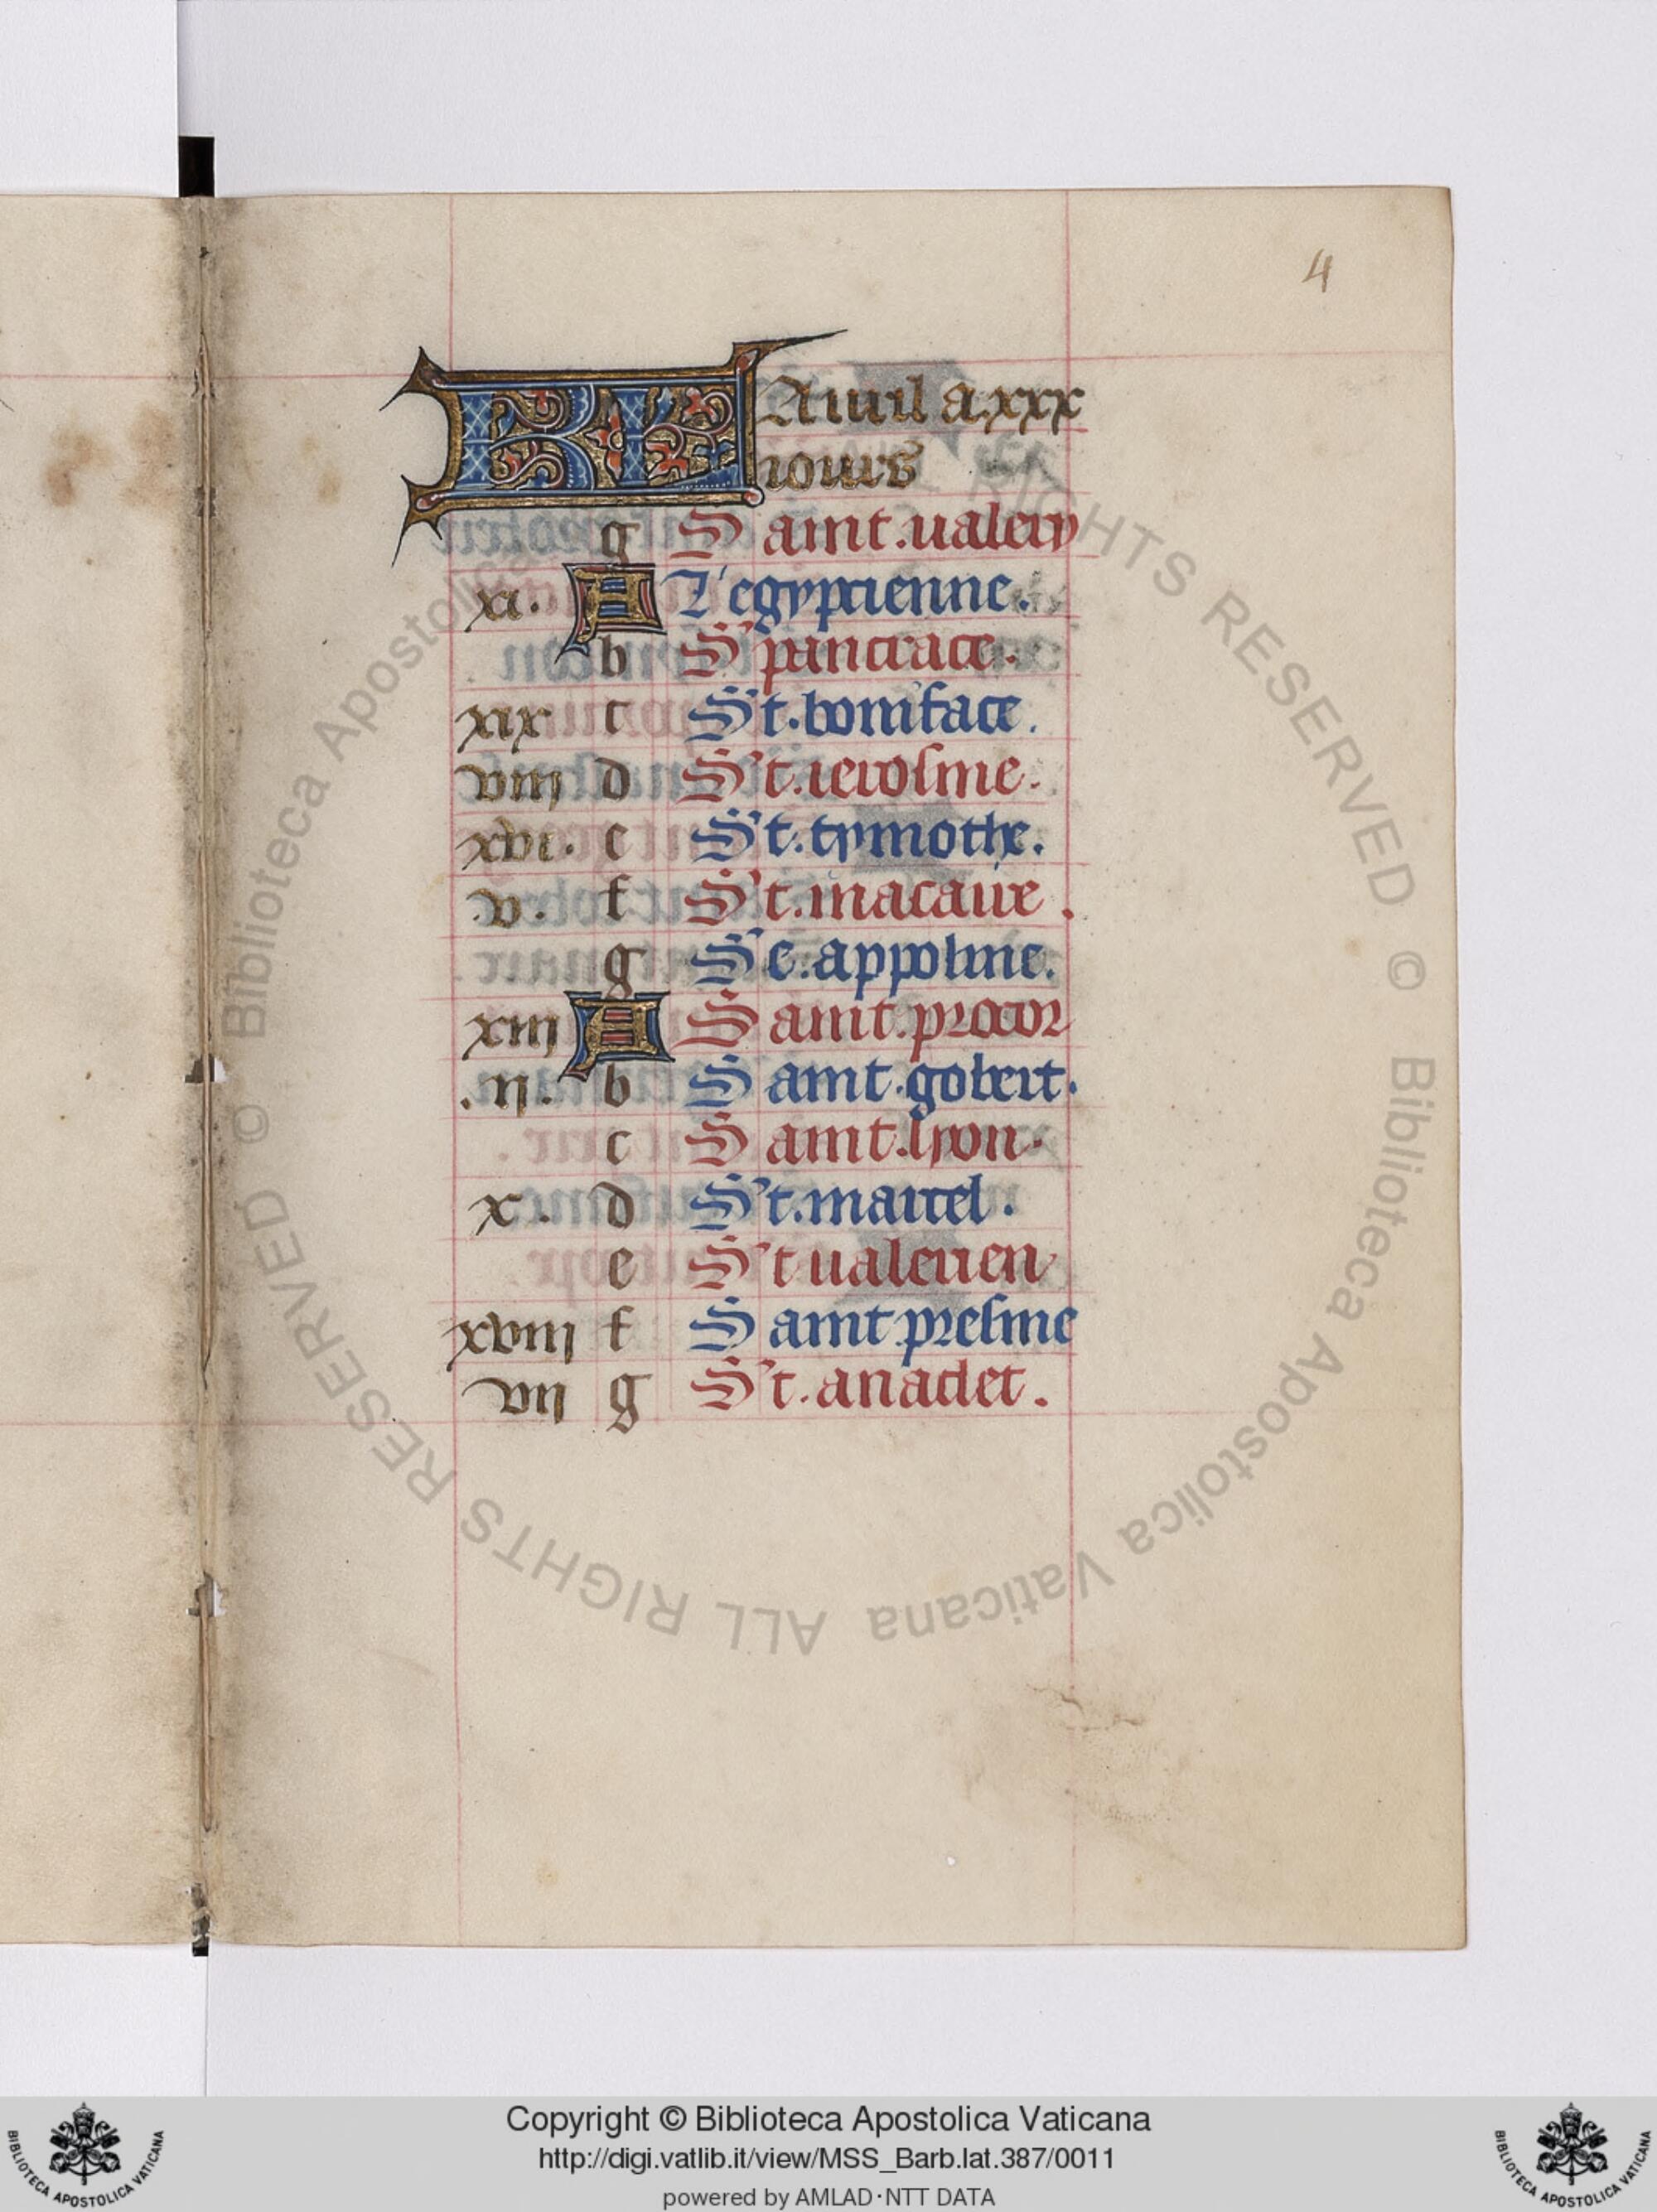 4
KL Auril a.xxx
iours
g Saint.ualery
xi. A L'egyptienne.
b S' pancrace.
xix c S't.boniface.
viii d S't.ierosme.
xvi. e S't.tymothe.
.v. f S't.macaire.
g S'e.appoline.
xiii A Saint.procor
.ii. b Saint.gobert.
c Saint.lyon.
x. d S't.martel.
e S't ualerien
xviii f Saint presme
vii g S't.anaclet.
© Biblioteca Apostolica Vaticana ALL RIGHTS RESERVED © Biblioteca Apostolica Vaticana ALL RIGHTS RESERVED
Copyright © Biblioteca Apostolica Vaticana
http://digi.vatlib.it/view/MSS_Barb.lat.387/0011
powered by AMLAD·NTT DATA
BIBLIOTECA APOSTOLICA VATICANA
BIBLIOTECA APOSTOLICA VATICANA